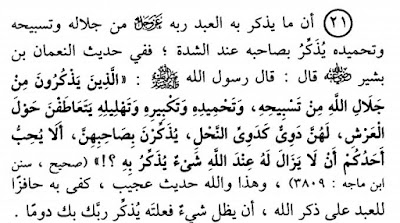 (٢١) أن ما يذكر به العبد ربه ﷻ من جلاله وتسبيحه
وتحميده يُذَكِّرُ بصاحبه عند الشدة ؛ ففي حديث النعمان بن
بشير ﷺ قال : قال رسول الله ﷺ : «الَّذِينَ يَذْكُرُونَ مِنْ
جَلَالِ اللَّهِ مِنْ تَسْبِيحِهِ، وَتَحْمِيدِهِ وَتَكْبِيرِهِ وَتَهْلِيلِهِ يَتَعَاطَفْنَ حَوْلَ
الْعَرْشِ، لَهُنَّ دَوِيٌّ كَدَوِيِّ النَّحْلِ، يُذَكِّرْنَ بِصَاحِبِهِنَّ، أَلَا يُحِبُّ
أَحَدُكُمْ أَنْ لَا يَزَالَ لَهُ عِنْدَ اللَّهِ شَيْءٌ يُذَكِّرُ بِهِ ؟!» (صحيح ، سنن
ابن ماجه : ٣٨٠٩) ، وهذا والله حديث عجيب ، كفى به حافزًا
للعبد على ذكر الله ، أن يظل شيءٌ فعلته يُذكِّر ربَّك بك دومًا .